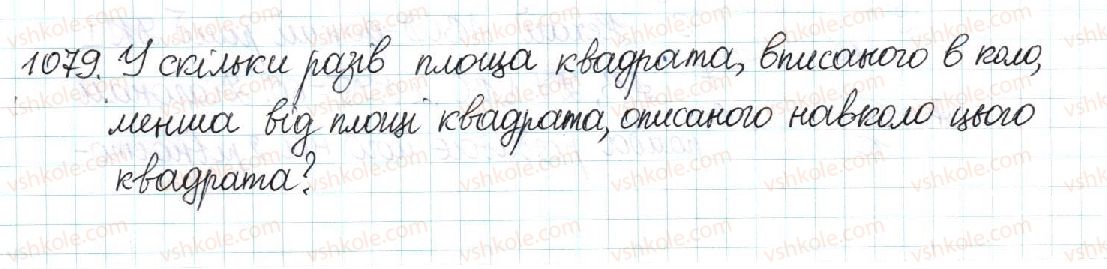 1079. У скільки разів площа квадрата, вписаного в коло,
менша від площі квадрата, описаного навколо цього
квадрата?
vshkole.com